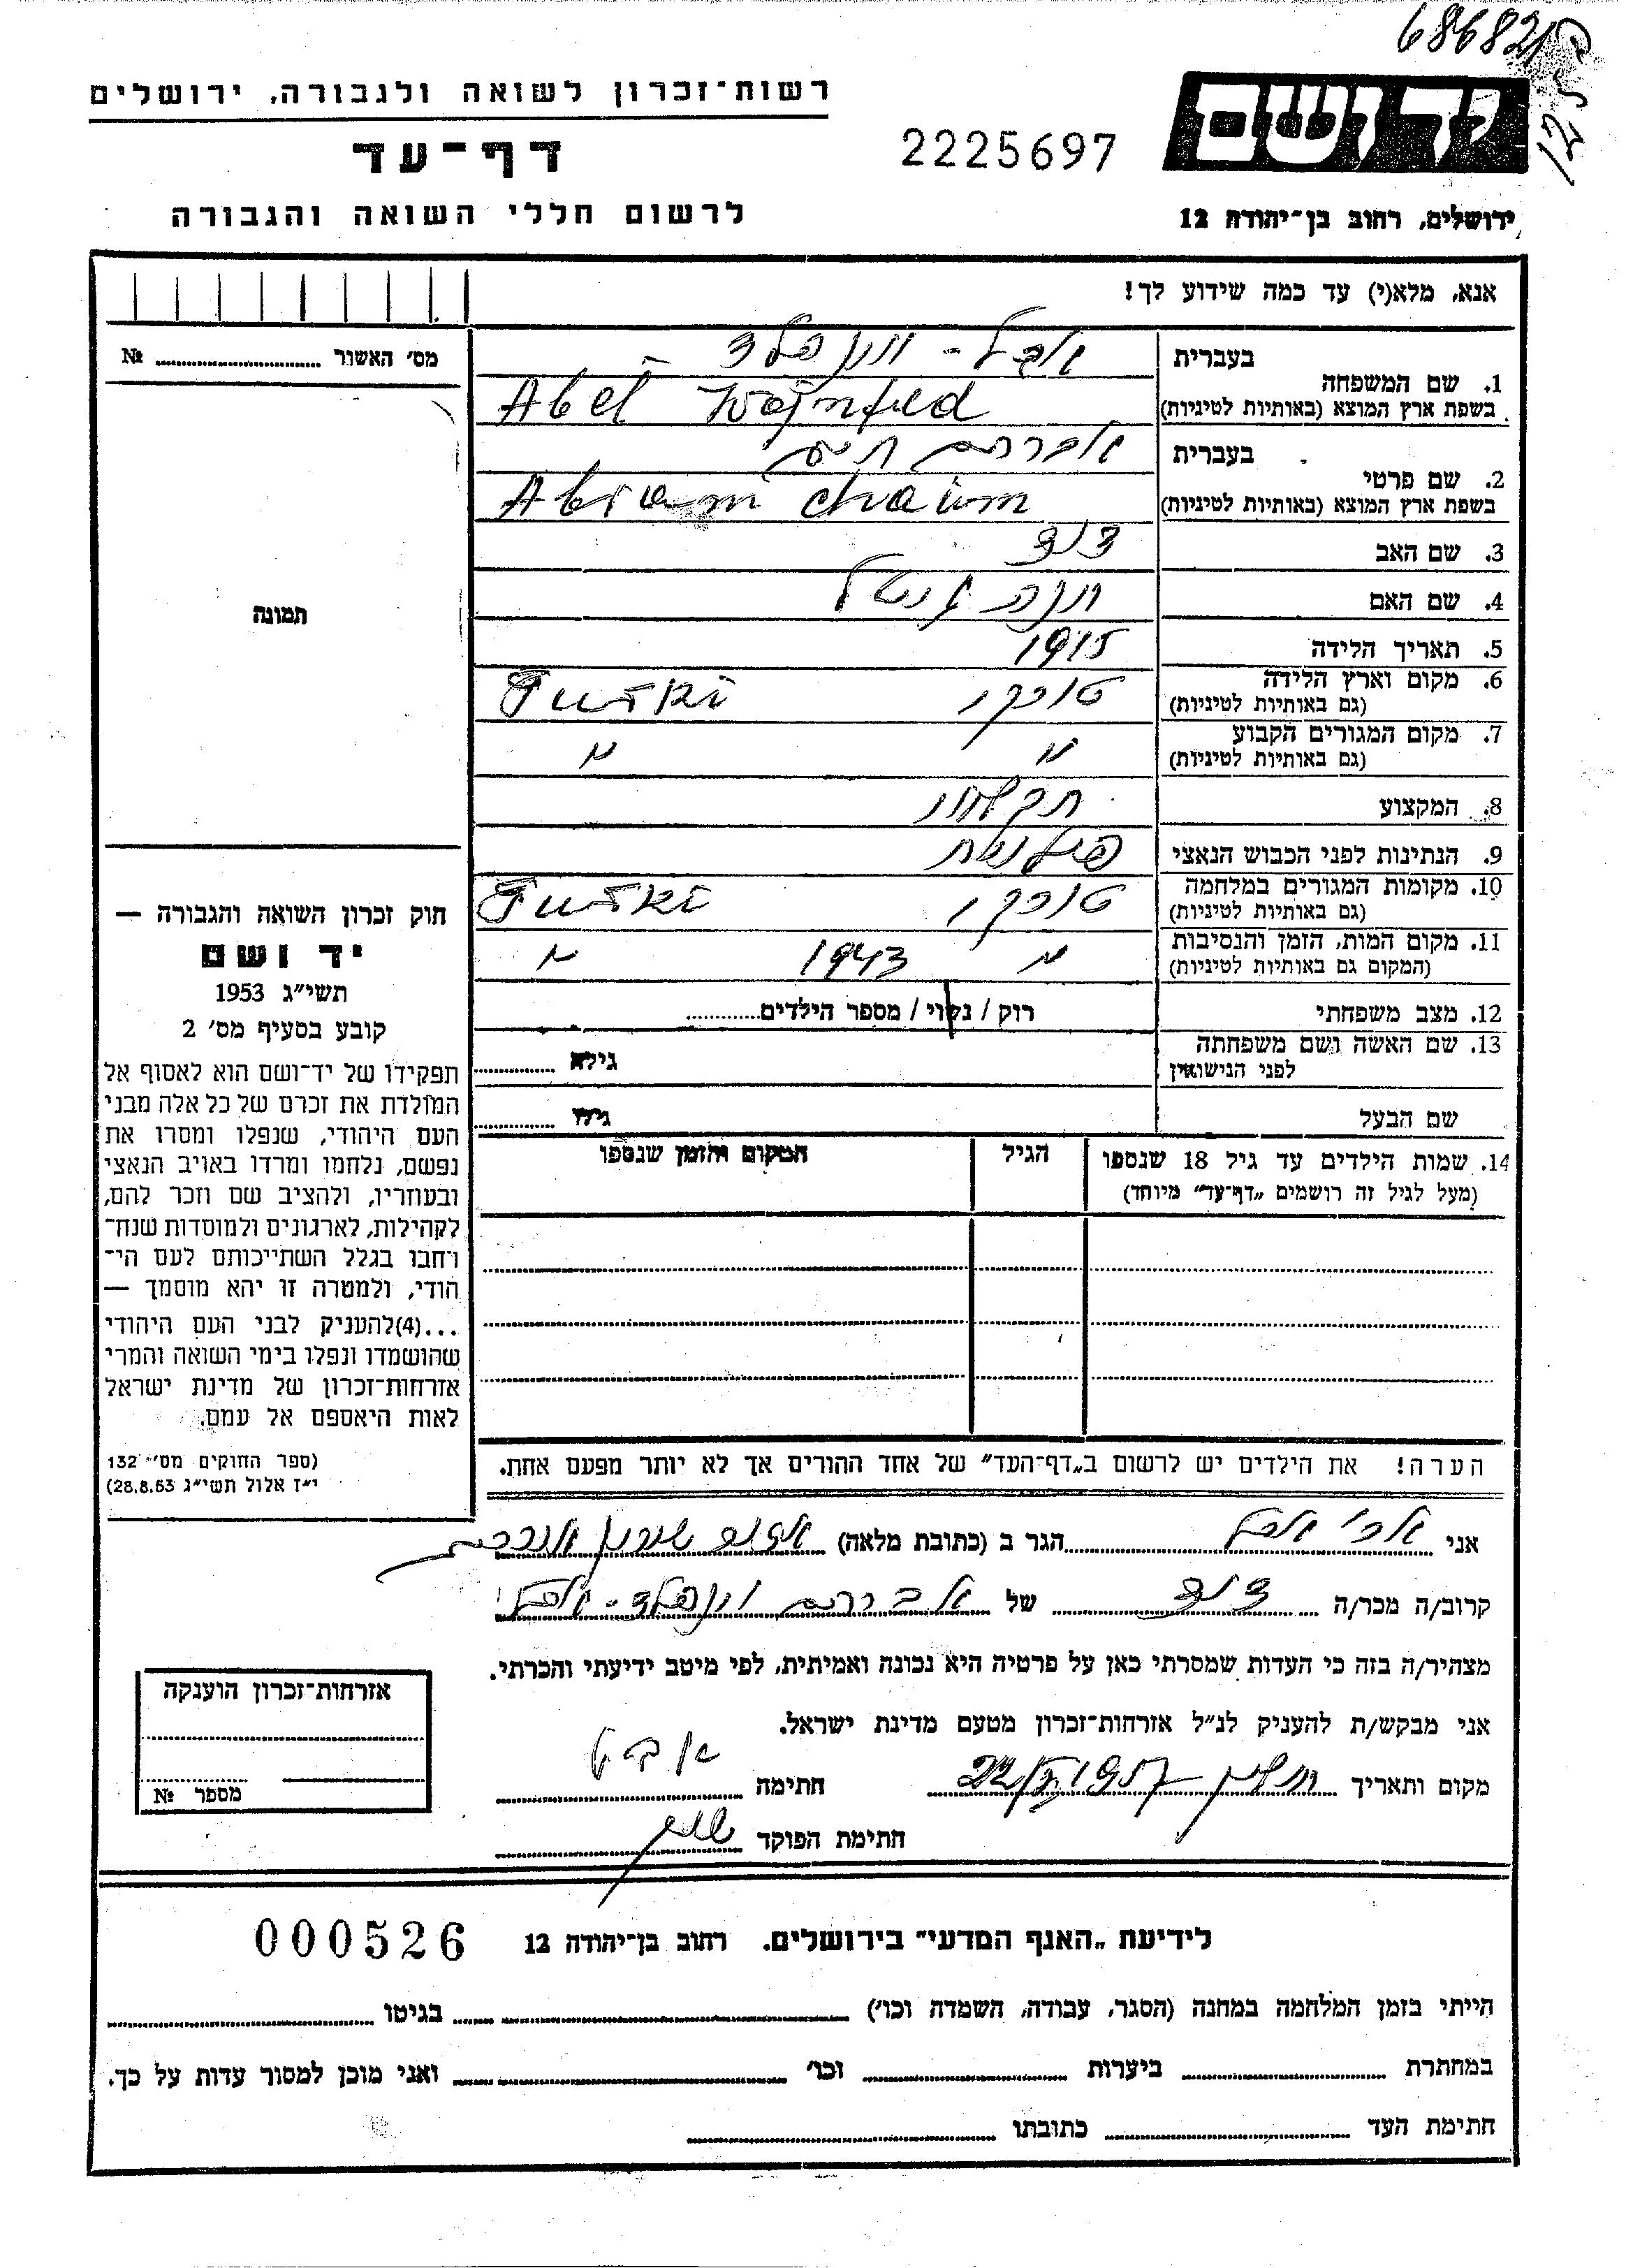 686821
רשות־זכרון לשואה ולגבורה, ירושלים
2225697
יד ושם
דף־עד
לרשום חללי השואה והגבורה
ירושלים, רחוב בן־יהודה 12
אנא, מלא(י) עד כמה שידוע לך!
מס' האשור № 
1. שם המשפחה בעברית אבל - וינפלד
בשפת ארץ המוצא (באותיות לטיניות) Abel Wajnfeld
2. שם פרטי בעברית אברהם חיים
בשפת ארץ המוצא (באותיות לטיניות) Abram Chaim
3. שם האב דוד
4. שם האם
5. תאריך הלידה 1915
6. מקום וארץ הלידה טורקי Turki
(גם באותיות לטיניות)
7. מקום המגורים הקבוע " "
(גם באותיות לטיניות)
8. המקצוע
9. הנתינות לפני הכבוש הנאצי פולנית
10. מקומות המגורים במלחמה טורקי Turki
(גם באותיות לטיניות)
11. מקום המות, הזמן והנסיבות " 1943 "
(המקום גם באותיות לטיניות)
12. מצב משפחתי רוק / נשוי / מספר הילדים
13. שם האשה ושם משפחתה גילה
לפני הנישואין
שם הבעל גילו
14. שמות הילדים עד גיל 18 שנספו הגיל המקום והזמן שנספו
(מעל לגיל זה רושמים „דף־עד" מיוחד)
הערה! את הילדים יש לרשום ב„דף־העד" של אחד ההורים אך לא יותר מפעם אחת.
תמונה
חוק זכרון השואה והגבורה —
יד ושם
תשי"ג 1953
קובע בסעיף מס' 2
תפקידו של יד־ושם הוא לאסוף אל
המולדת את זכרם של כל אלה מבני
העם היהודי, שנפלו ומסרו את
נפשם, נלחמו ומרדו באויב הנאצי
ובעוזריו, ולהציב שם וזכר להם,
לקהילות, לארגונים ולמוסדות שנח־
רחבו בגלל השתייכותם לעם הי־
הודי, ולמטרה זו יהא מוסמך —
...(4)להעניק לבני העם היהודי
שהושמדו ונפלו בימי השואה והמרי
אזרחות־זכרון של מדינת ישראל
לאות היאספם אל עמם.
(ספר החוקים מס' 132
י"ז אלול תשי"ג 28.8.53)
אני אבל הגר ב (כתובת מלאה)
קרוב/ה מכר/ה דוד של אברהם וינפלד - אבל
מצהיר/ה בזה כי העדות שמסרתי כאן על פרטיה היא נכונה ואמיתית, לפי מיטב ידיעתי והכרתי.
אני מבקש/ת להעניק לנ"ל אזרחות־זכרון מטעם מדינת ישראל.
מקום ותאריך 1957 חתימה
חתימת הפוקד
אזרחות־זכרון הוענקה
מספר №
לידיעת „האגף המדעי" בירושלים. רחוב בן־יהודה 12 000526
הייתי בזמן המלחמה במחנה (הסגר, עבודה, השמדה וכו') בגיטו
במחתרת ביערות וכו' ואני מוכן למסור עדות על כך.
חתימת העד כתובתו